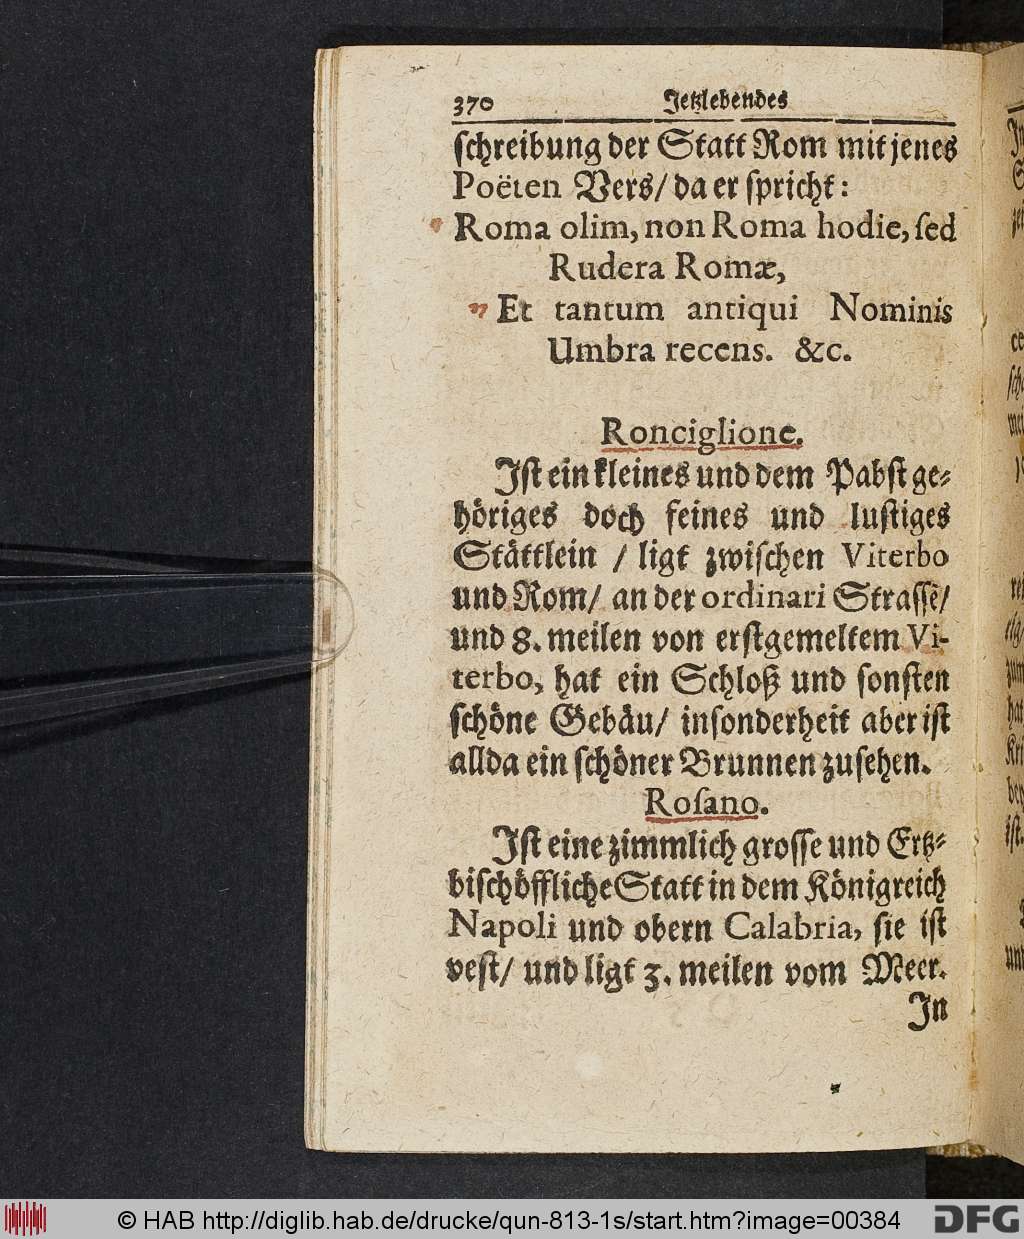 370 Jetzlebendes
ſchreibung der Statt Rom mit jenes
Poëten Vers/ da er ſpricht:
Roma olim, non Roma hodie, ſed
Rudera Romæ,
Et tantum antiqui Nominis
Umbra recens. &c.
Ronciglione.
Iſt ein kleines und dem Pabſt ge-
höriges doch feines und luſtiges
Stättlein / ligt zwiſchen Viterbo
und Rom/ an der ordinari Straſſe/
und 8. meilen von erſtgemeltem Vi-
terbo, hat ein Schloß und ſonſten
ſchöne Gebäu/ inſonderheit aber iſt
allda ein ſchöner Brunnen zuſehen.
Roſano.
Iſt eine zimmlich groſſe und Ertz-
biſchöffliche Statt in dem Königreich
Napoli und obern Calabria, ſie iſt
veſt/ und ligt 3. meilen vom Meer.
In
© HAB http://diglib.hab.de/drucke/qun-813-1s/start.htm?image=00384
DFG